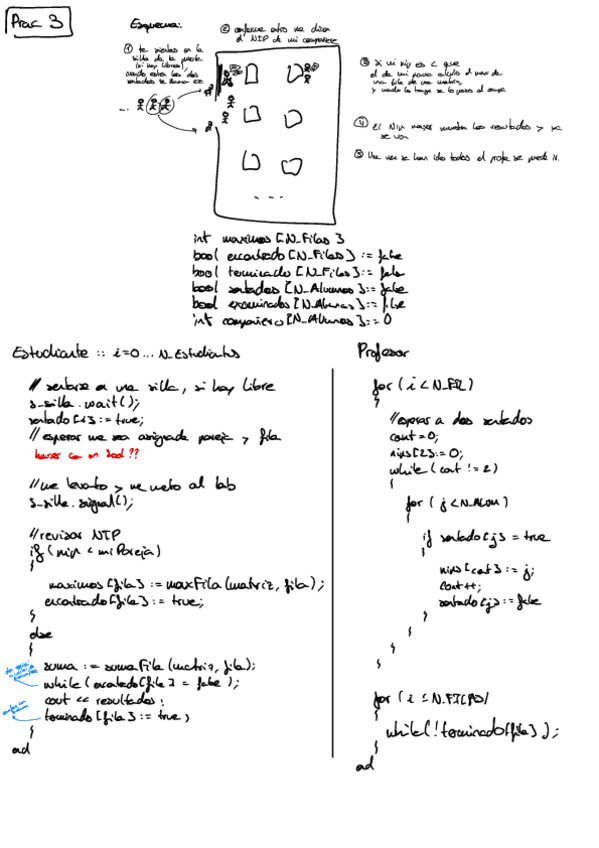 Prac 3
Esquema:
② conforme entro me dicen
el NIP de mi compañero
① te sientas en la
silla de la puerta
(si hay libres),
cuando estén los dos
sentados se
③ Si mi nip es < que
el de mi pareja calculo el max de
una fila de una matriz,
y cuando lo tengo se lo paso al
④ El NIP mayor muestra los resultados y
se va
⑤ Una vez se han ido todos el profe se puede ir.
...
- - -
int maximos [N_Filas]
bool encontrado [N_Filas] := false
bool terminado [N_Filas] := false
bool sentados [N_Alumnos] := false
bool examinados [N_Alumnos] := false
int compañero [N_Alumnos] := 0
Estudiante :: i=0 ... N_Estudiantes
// sentarse en una silla, si hay libre
s_silla.wait();
sentado[i] := true;
// esperar me sea asignada pareja y fila
hacer con un bool??
// me levanto y me meto al lab
s_silla.signal();
// revisar NIP
if (nip < miPareja)
{
maximos[fila] := maxFila(matriz, fila);
encontrado[fila] := true;
}
else
{
suma := sumaFila(matriz, fila);
while (encontrado[fila] = false);
cout << resultados;
terminado[fila] := true;
}
end
Profesor
for (i < N_FIL)
{
// esperar a dos sentados
cont = 0;
nips[2] := 0;
while (cont != 2)
{
for (j < N_ALUM)
{
if sentado[j] = true
{
nips[cont] := j;
cont++;
sentado[j] := false
}
}
}
}
for (i ≤ N_FILAS)
{
while(!terminado[fila]);
}
end